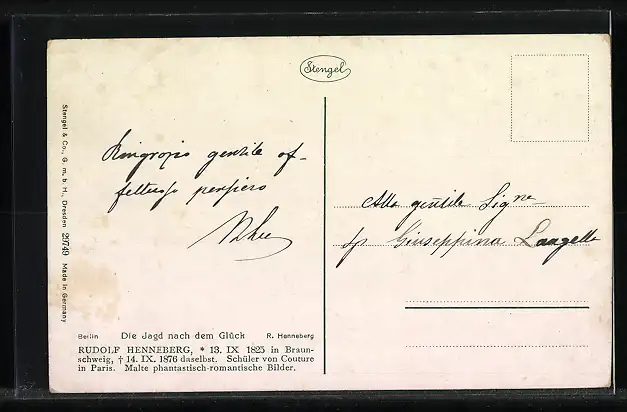 Stengel
Stengel & Co., G. m. b. H., Dresden 29749 Made in Germany
Ringrazio gentile af-
fettuoso pensiero
Alla gentile Sigᶰᵃ
Giuseppina
Berlin Die Jagd nach dem Glück R. Henneberg
RUDOLF HENNEBERG, * 13. IX 1825 in Braun-
schweig, † 14. IX. 1876 daselbst. Schüler von Couture
in Paris. Malte phantastisch-romantische Bilder.